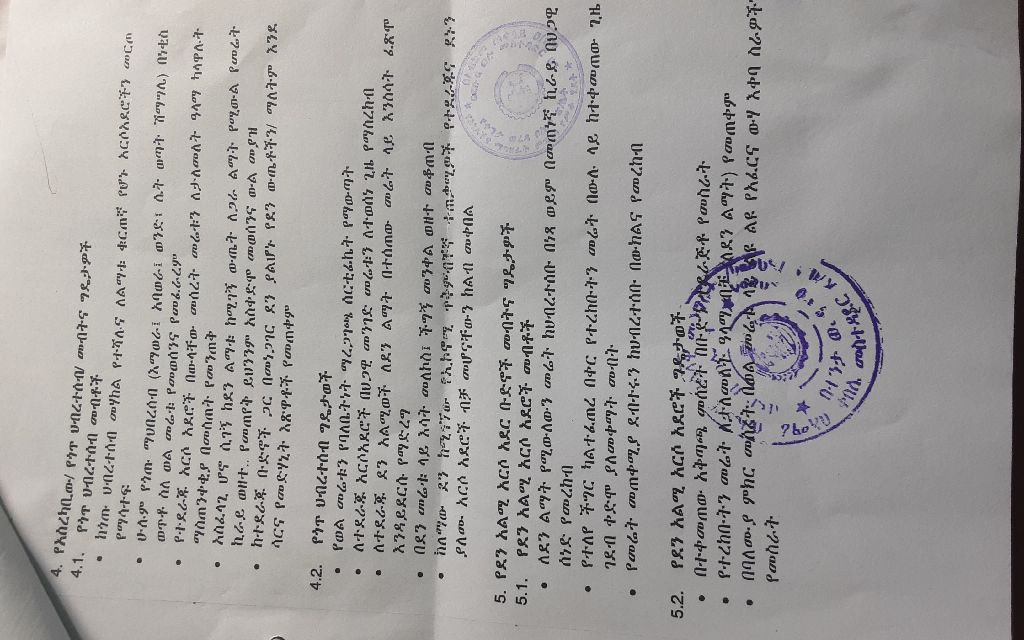 4. የአስረካቢው/ የጎጥ ህብረተሰብ/ መብትና ግዴታዎች
4.1. የጎጥ ህብረተሰብ መብቶች
• ከጎጡ ህብረተሰብ መሃከል የተሻሉና ለልማቱ ቁርጠኛ የሆኑ አርሶአደሮችን መርጦ
ማሳተፍ
• ሁሉም የጎጡ ማህበረሰብ (አማወራ፣ አባወራ፣ ወንድ፣ ሴት ወጣት ሽማግሌ) በነቂስ
ወጥቶ ስለ ወል መሬቱ የመወሰንና የመፈራረም
• የተደራጁ አርሶ አደሮች በውላቸው መሰረት መሬቱን ለታለመለት ዓላማ ካላዋሉት
ማስጠንቀቂያ በመስጠት የመንጠቅ
• አስፈላጊ ሆኖ ሲገኝ ከደን ልማቱ ከሚገኝ ውጤት ለጋራ ልማት የሚውል የመሬት
ኪራይ ወዘተ.. የመጠየቅ ይህንንም አስቀድሞ መወሰንና ውል መያዝ
• ከተደራጁ ቡድኖች ጋር በመነጋገር ደን ያልሆኑ የደን ውጤቶችን/ ማለትም እንደ
ሳርና የመድሃኒት እጽዋቶች የመጠቀም
4.2. የጎጥ ህብረተሰብ ግዴታዎች
• የወል መሬቱን የባለቤትነት ማረጋገጫ ሰርቲፊኬት የማውጣት
• ለተደራጁ አርሶአደሮች በህጋዊ መንገድ መሬቱን ለተወሰነ ጊዜ የማስረከብ
• ለተደራጁ ደን አልሚዎች ለደን ልማት በተሰጠው መሬት ላይ እንስሳት ፈጽሞ
እንዳይደርሱ የማድረግ
• በደን መሬቱ ላይ እሳት መለኮስ፣ ችግኝ መንቀል ወዘተ መቆጠብ
• ከለማው ደን ከሚገኘው የኢኮኖሚ ጥቅም ተጠቃሚዎች የተደራጁና ደኑን
ያለሙ አርሶ አደሮች ብቻ መሆናቸውን ከልብ መቀበል
5. የደን አልሚ አርሶ አደር ቡድኖች መብትና ግዴታዎች
5.1. የደን አልሚ አርሶ አደሮች መብቶች
• ለደን ልማት የሚውለውን መሬት ከህብረተሰቡ በነጻ ወይም በመጠነኛ ኪራይ በህጋዊ
ሰነድ የመረከብ
• የተለየ ችግር ካልተፈጠረ በቀር የተረከቡትን መሬት በውሉ ላይ ከተቀመጠው ጊዜ
ገደብ ቀድሞ ያለመቀማት መብት
• የመሬት መጠቀሚያ ደብተሩን ከህብረተሰቡ በውክልና የመረከብ
5.2. የደን አልሚ አርሶ አደሮች ግዴታዎች
• በተቀመጠው አቅጣጫ መሰረት በቡድን ተደራጅቶ የመስራት
• የተረከቡትን መሬት ለታለመለት ዓላማ ብቻ (ለደን ልማት) የመጠቀም
• በባለሙያ ምክር መሰረት በወል መሬቱ ላይ ልዩ ልዩ የአፈርና ውሃ እቀባ ስራዎችን
የመስራት